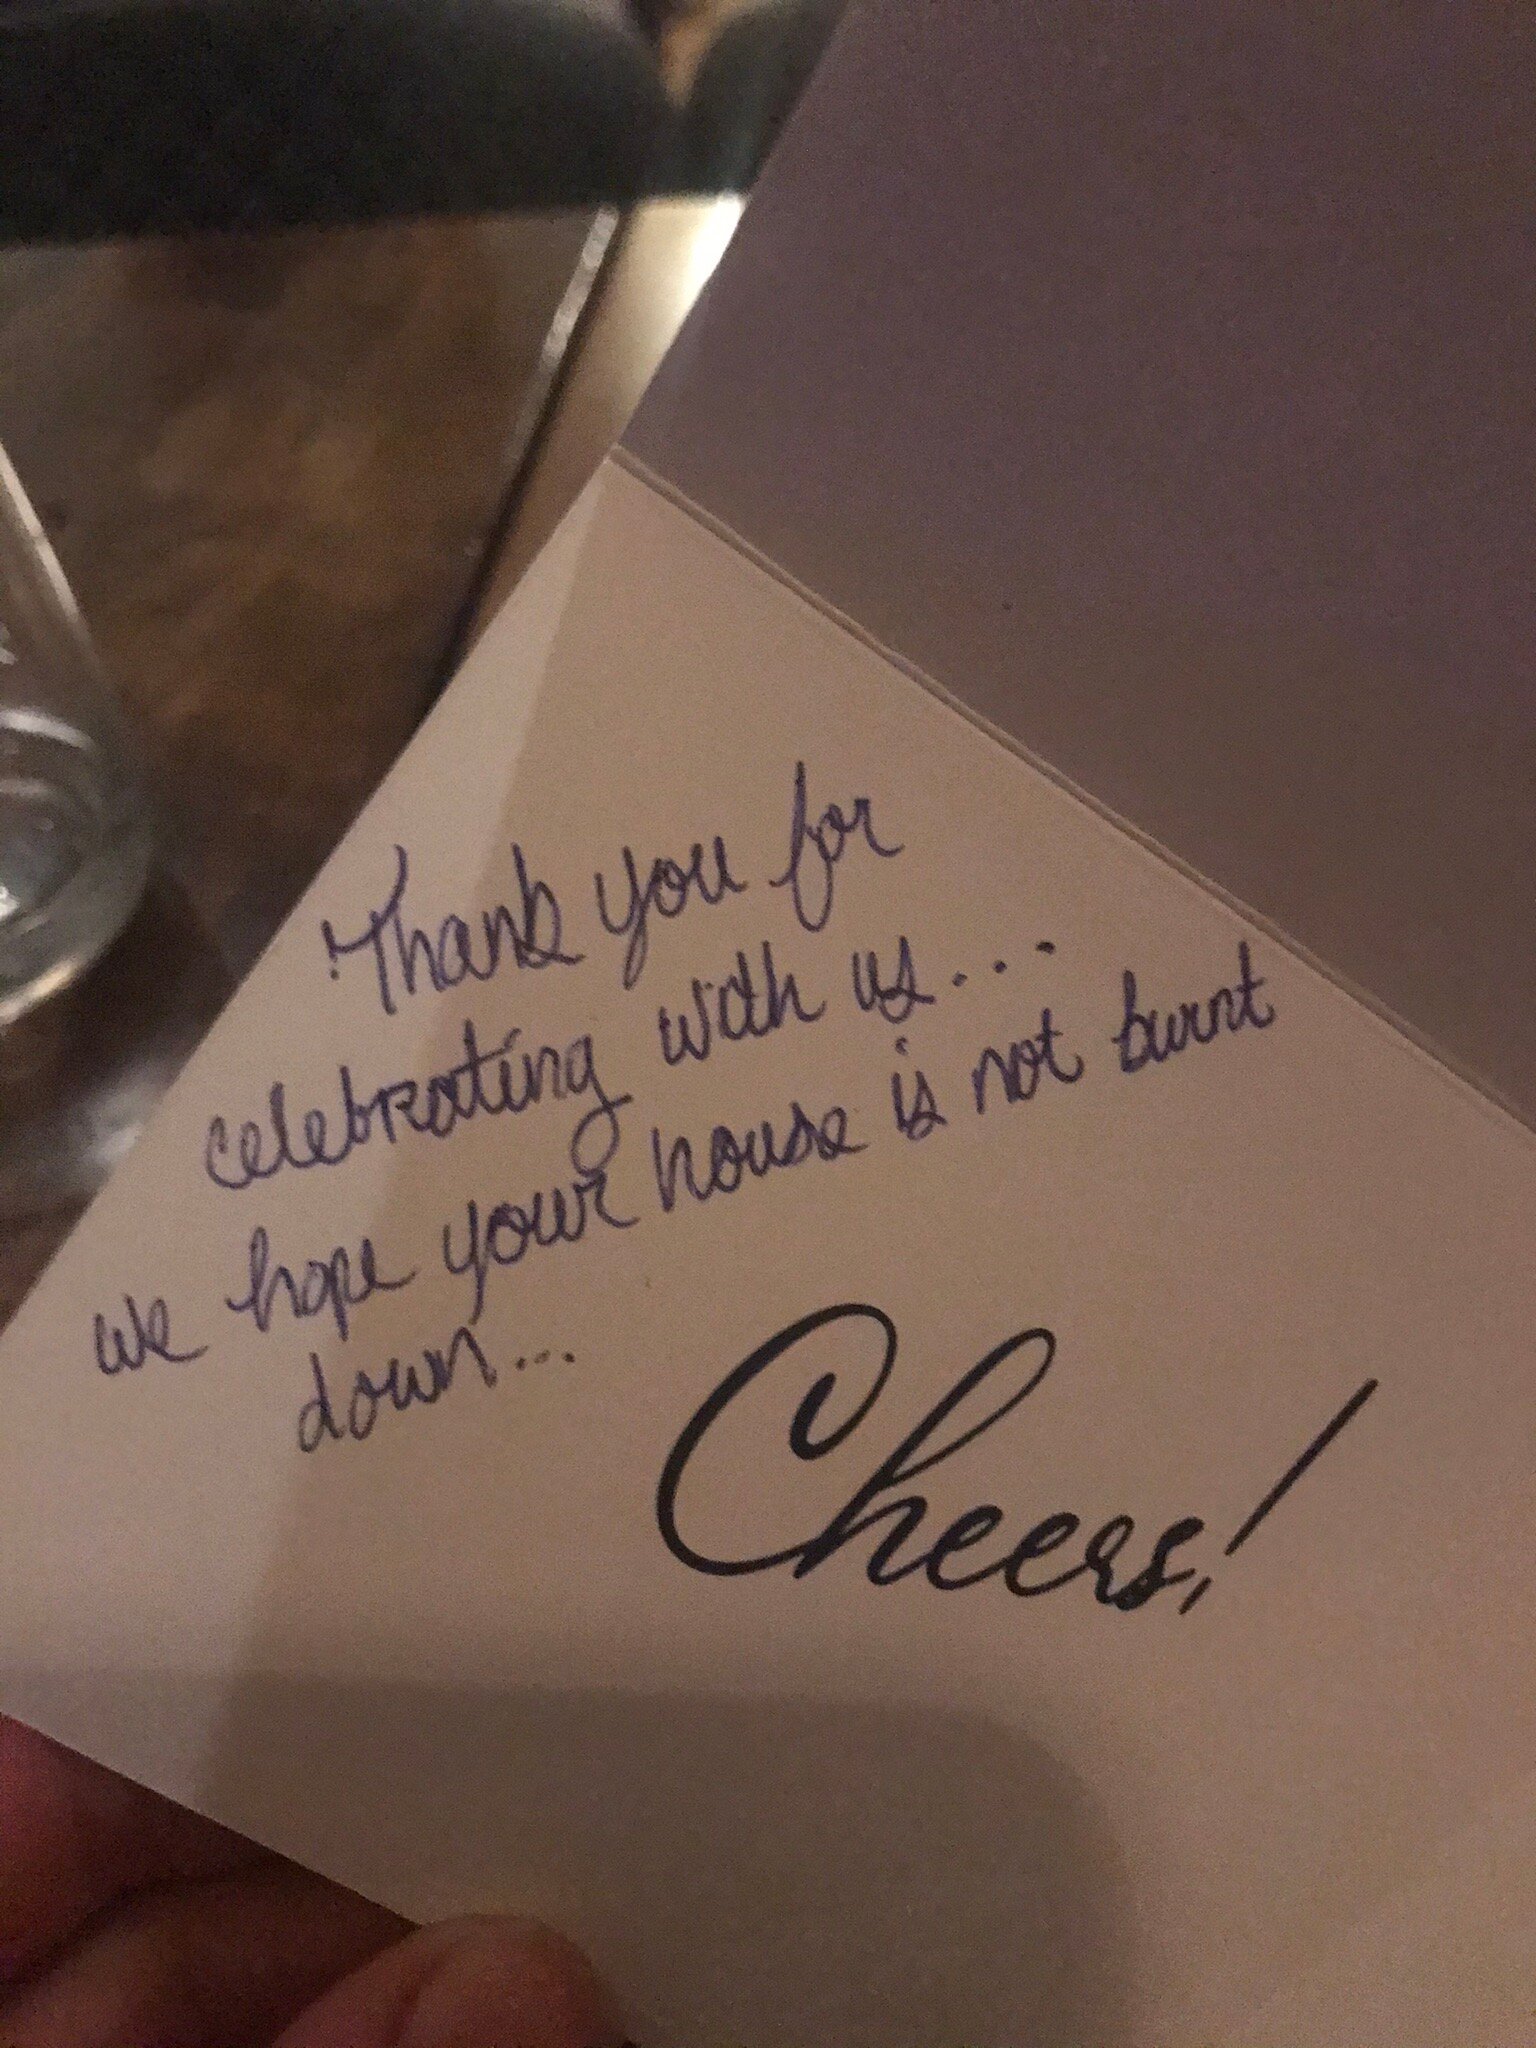 Thank you for
celebrating with us....
we hope your house is not burnt
down...
Cheers!